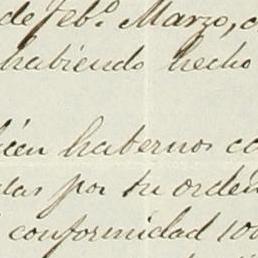 de feb.o Marzo,
habiendo hecho
habernos
por su orden
conformidad